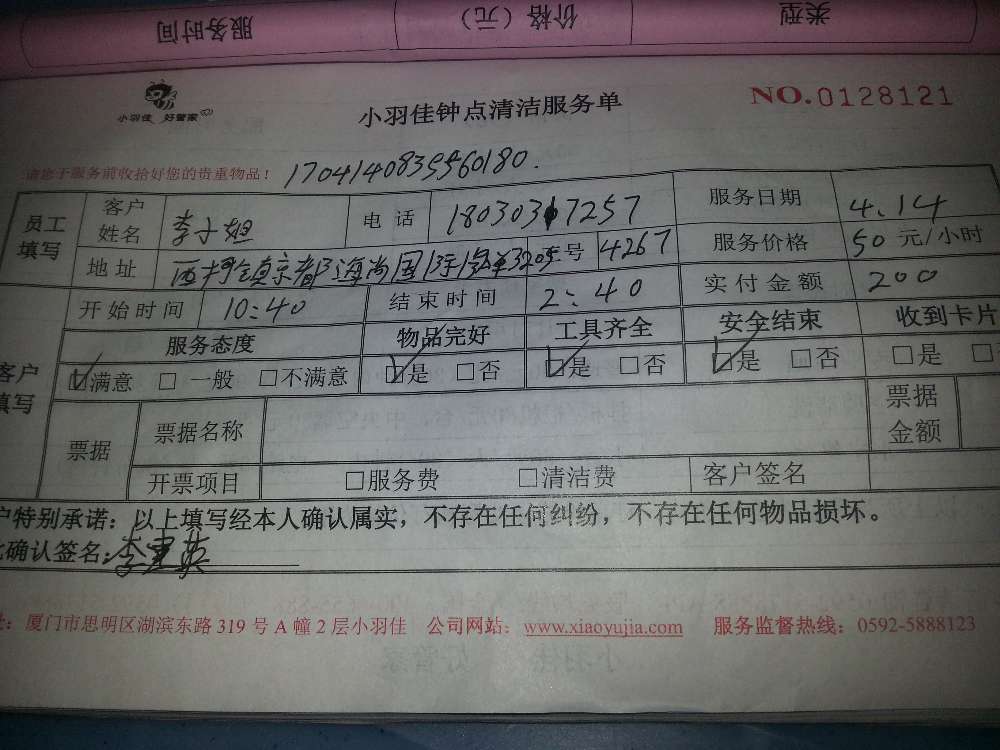 服务时间 价格（元） 类型
小羽佳 好管家
小羽佳钟点清洁服务单
NO.0128121
请您于服务前收拾好您的贵重物品！ 1704140835560180.
员工填写 客户姓名 李小姐 电话 18030317257 服务日期 4.14
地址 320 号 4267 服务价格 50 元/小时
开始时间 10:40 结束时间 2:40 实付金额 200
服务态度 物品完好 工具齐全 安全结束 收到卡片
客户填写 ☑满意 □一般 □不满意 ☑是 □否 ☑是 □否 ☑是 □否 □是 □
票据 票据名称 票据金额
开票项目 □服务费 □清洁费 客户签名
户特别承诺：以上填写经本人确认属实，不存在任何纠纷，不存在任何物品损坏。
此确认签名：李 英
址：厦门市思明区湖滨东路 319 号 A 幢 2 层小羽佳 公司网站：www.xiaoyujia.com 服务监督热线：0592-5888123